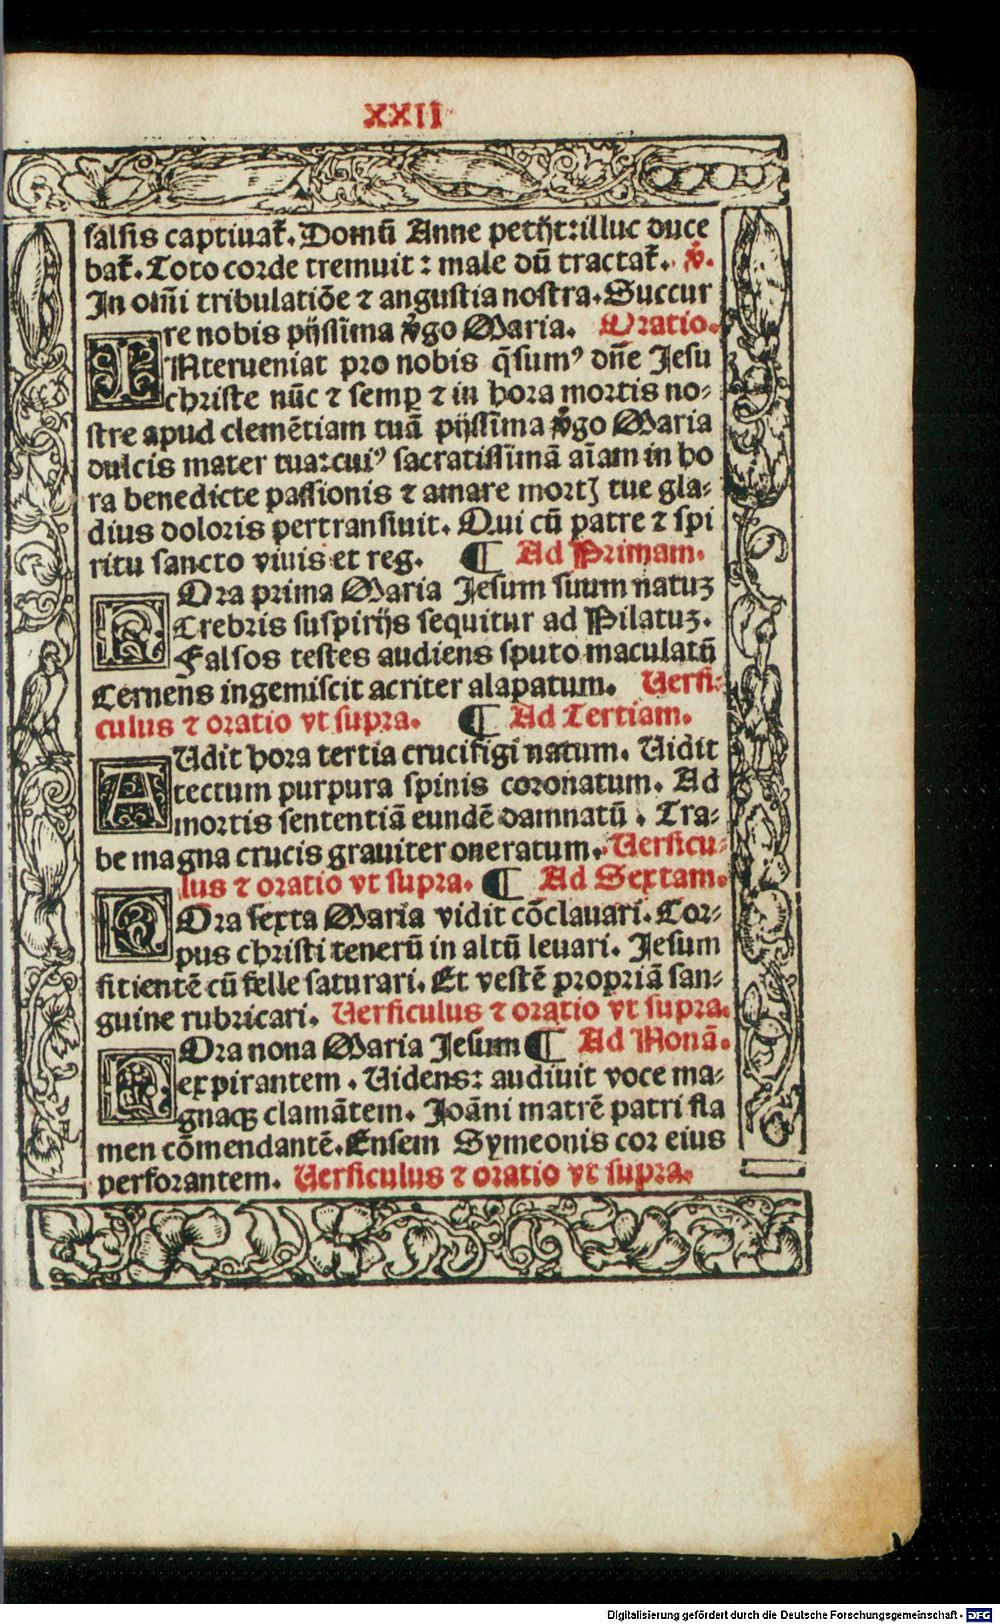 XXII
salsis captiuat̄. Domū Anne petijt: illuc duce
bat̄. Toto corde tremuit: male dū tractat̄. ℣.
In om̄i tribulatiōe ⁊ angustia nostra. Succur
re nobis pijssīma v̓go Maria. Oratio.
INterueniat pro nobis q̄sumꝰ dn̄e Jesu
christe nūc ⁊ semꝑ ⁊ in hora mortis no⸗
stre apud clemētiam tuā pijssīma v̓go Maria
dulcis mater tua: cuiꝰ sacratissīmā aīam in ho
ra benedicte passionis ⁊ amare mortꝭ tue gla⸗
dius doloris pertransiuit. Qui cū patre ⁊ spi
ritu sancto viuis et reg. ¶ Ad Primam.
HOra prima Maria Jesum suum natuꝫ
Crebris suspirijs sequitur ad Pilatuꝫ.
Falsos testes audiens sputo maculatū
Cernens ingemiscit acriter alapatum. Uersi⸗
culus ⁊ oratio vt supra. ¶ Ad Tertiam.
AUdit hora tertia crucifigi natum. Uidit
tectum purpura spinis coronatum. Ad
mortis sententiā eundē damnatū. Tra⸗
be magna crucis grauiter oneratum. Uersicu⸗
lus ⁊ oratio vt supra. ¶ Ad Sextam.
HOra sexta Maria vidit cōclauari. Cor⸗
pus christi tenerū in altū leuari. Jesum
sitientē cū felle saturari. Et vestē propriā san⸗
guine rubricari. Uersiculus ⁊ oratio vt supra.
HOra nona Maria Jesum ¶ Ad Nonā.
expirantem. Uidens: audiuit voce ma⸗
gnaqꝫ clamātem. Joāni matrē patri fla
men cōmendantē. Ensem Symeonis cor eius
perforantem. Uersiculus ⁊ oratio vt supra.
Digitalisierung gefördert durch die Deutsche Forschungsgemeinschaft - DFG